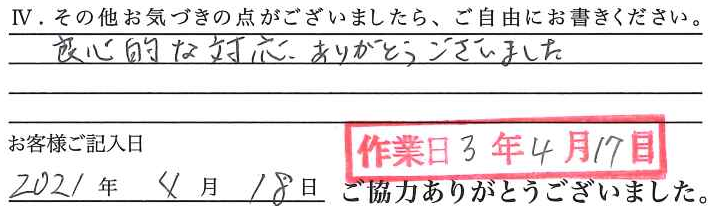 Ⅳ．その他お気づきの点がございましたら、ご自由にお書きください。
良心的な対応、ありがとうございました
お客様ご記入日
作業日3年4月17日
2021年4月18日
ご協力ありがとうございました。